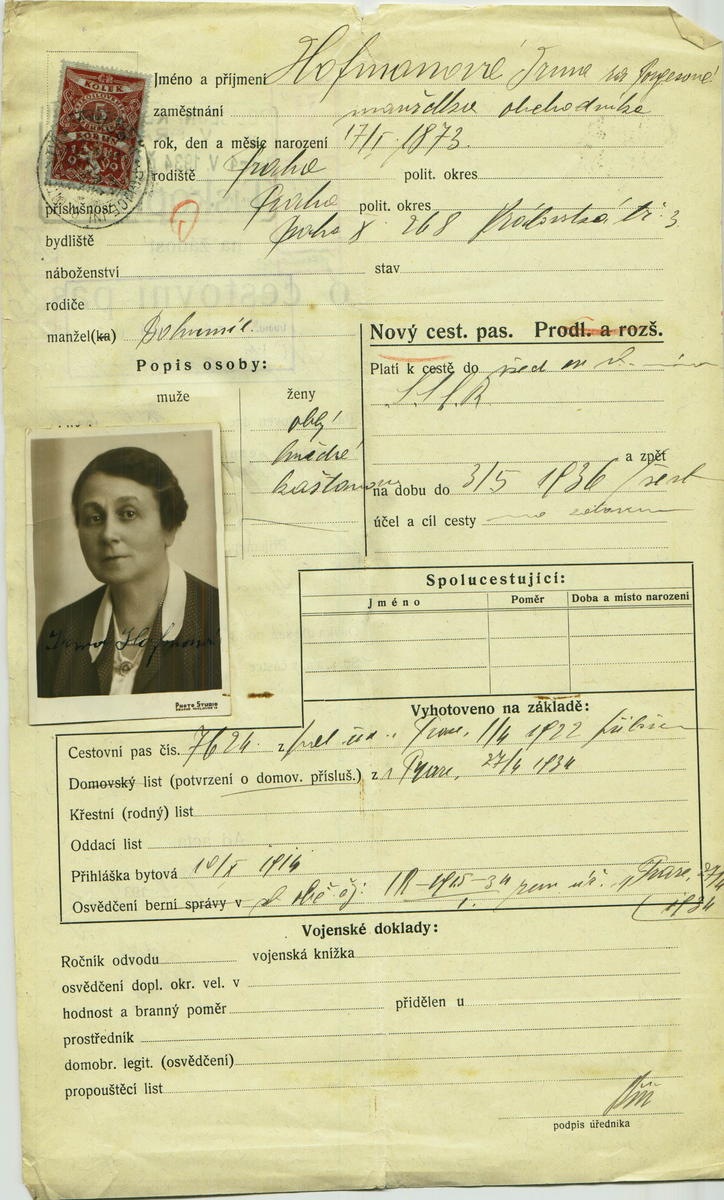 KOLEK
Jméno a příjmení Hofmanové Irma
zaměstnání manželka obchodníka
rok, den a měsíc narození 17/I. 1873.
rodiště Praha polit. okres
příslušnost Praha polit. okres
bydliště Praha X 268 Královská tř. 3
náboženství stav
rodiče
manžel(ka) Bohumil
Popis osoby:
muže ženy
oblý
hnědé
kaštanov
Nový cest. pas. Prodl. a rozš.
Platí k cestě do
a zpět
na dobu do 3/5 1936
účel a cíl cesty
Irma Hofmanová
PHOTO STUDIO
Spolucestující:
Jméno Poměr Doba a místo narození
Vyhotoveno na základě:
Cestovní pas čís. 7624. 1/4 1922
Domovský list (potvrzení o domov. přísluš.) z Praze, 27/4 1934
Křestní (rodný) list
Oddací list
Přihláška bytová 10/X 1914
Osvědčení berní správy v Praze, 27/4
1934
Vojenské doklady:
Ročník odvodu vojenská knížka
osvědčení dopl. okr. vel. v
hodnost a branný poměr přidělen u
prostředník
domobr. legit. (osvědčení)
propouštěcí list
podpis úředníka